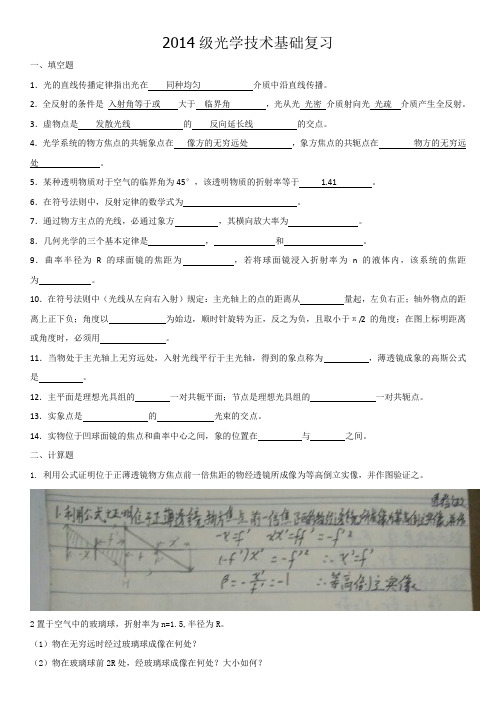 2014级光学技术基础复习
一、填空题
1．光的直线传播定律指出光在 同种均匀 介质中沿直线传播。
2．全反射的条件是 入射角等于或 大于 临界角 ，光从光 光密 介质射向光 光疏 介质产生全反射。
3．虚物点是 发散光线 的 反向延长线 的交点。
4．光学系统的物方焦点的共轭象点在 像方的无穷远处 ，象方焦点的共轭点在 物方的无穷远
处 。
5．某种透明物质对于空气的临界角为45°，该透明物质的折射率等于 1.41 。
6．在符号法则中，反射定律的数学式为 。
7．通过物方主点的光线，必通过象方 ，其横向放大率为 。
8．几何光学的三个基本定律是 ， 和 。
9．曲率半径为 R 的球面镜的焦距为 ，若将球面镜浸入折射率为 n 的液体内，该系统的焦距
为 。
10．在符号法则中（光线从左向右入射）规定：主光轴上的点的距离从 量起，左负右正；轴外物点的距
离上正下负；角度以 为始边，顺时针旋转为正，反之为负，且取小于π/2 的角度；在图上标明距离
或角度时，必须用 。
11．当物处于主光轴上无穷远处，入射光线平行于主光轴，得到的象点称为 ，薄透镜成象的高斯公式
是 。
12．主平面是理想光具组的 一对共轭平面；节点是理想光具组的 一对共轭点。
13．实象点是 的 光束的交点。
14．实物位于凹球面镜的焦点和曲率中心之间，象的位置在 与 之间。
二、计算题
1. 利用公式证明位于正薄透镜物方焦点前一倍焦距的物经透镜所成像为等高倒立实像，并作图验证之。
1.利用公式证明位于正薄透镜物方焦点前一倍焦距的物经透镜所成像为等高倒立实像
-x=f' xx'=ff'=-f'²
(-f')x'=-f'² ∴x'=f'
β=-x'/f'=-1 ∴等高倒立实像
2置于空气中的玻璃球，折射率为n=1.5,半径为R。
（1）物在无穷远时经过玻璃球成像在何处？
（2）物在玻璃球前2R处，经玻璃球成像在何处？大小如何？